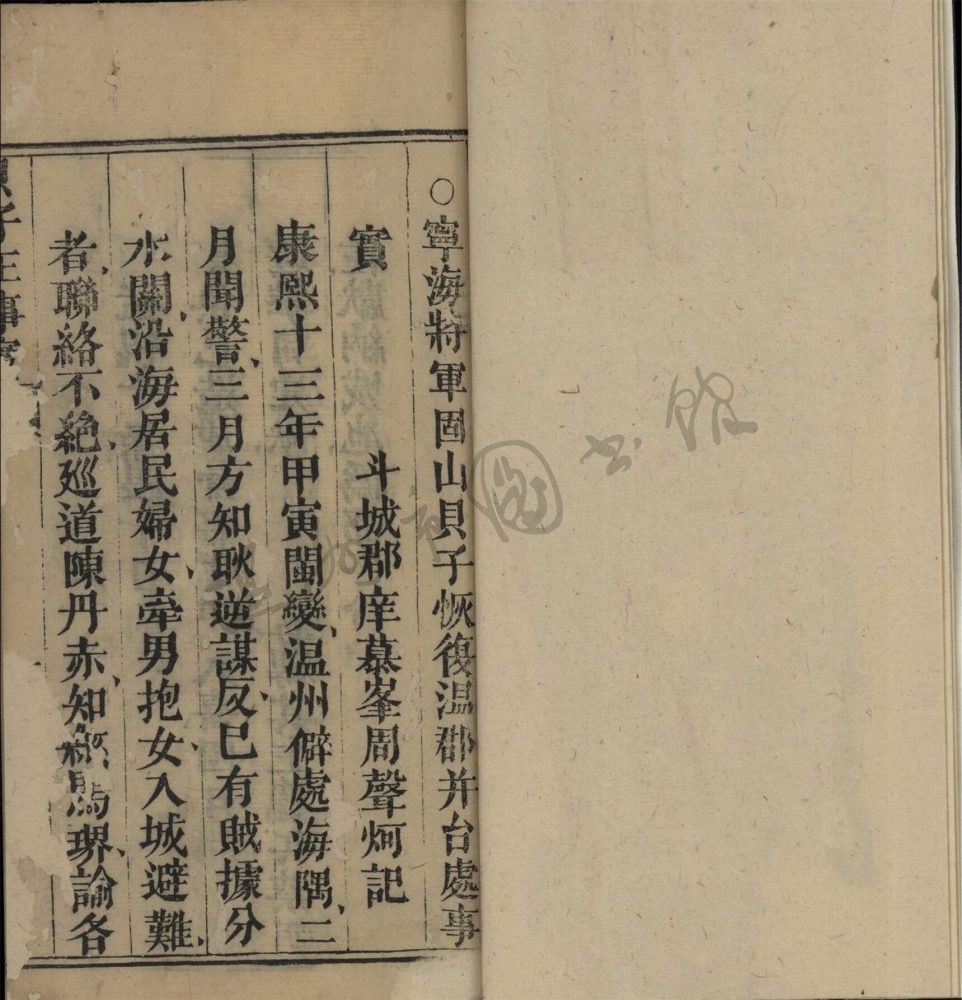 ○寧海將軍固山貝子恢復温郡并台處事
實
斗城郡庠慕峯周聲炣記
康熙十三年甲寅閩變、温州僻處海隅、二
月聞警、三月方知耿逆謀反、巳有賊據分
水關、沿海居民婦女、牽男抱女、入城避難、
者、聯絡不絶、廵道陳丹赤、知馬琾、諭各
貝子王事實
圖書館